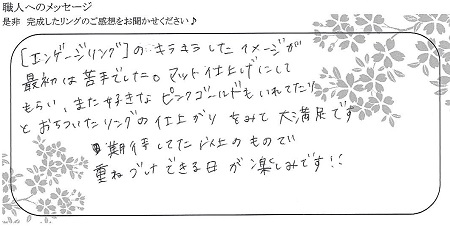 職人へのメッセージ
是非 完成したリングのご感想をお聞かせください♪
[エンゲージリング]のキラキラしたイメージが
最初は苦手でした。マット仕上げにして
もらい、また好きなピンクゴールドもいれてたり
とおちついたリングの仕上がりをみて大満足です
期待してた以上のもので
重ねづけできる日が楽しみです!!